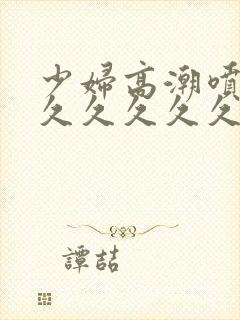 少婦高潮噴
久久久久久
譚喆